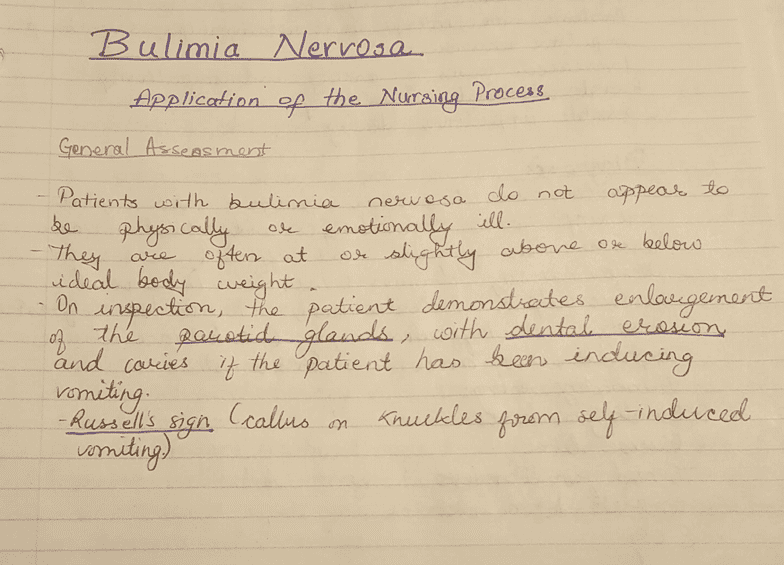 Bulimia Nervosa
Application of the Nursing Process
General Assessment
- Patients with bulimia nervosa do not appear to
be physically or emotionally ill.
- They are often at or slightly above or below
ideal body weight.
- On inspection, the patient demonstrates enlargement
of the parotid glands, with dental erosion
and caries if the patient has been inducing
vomiting.
- Russell's sign (callus on knuckles from self-induced
vomiting.)